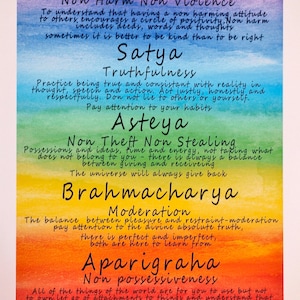 Non Harm Non Violence
To understand that having a non harming attitude
to others encourages a circle of positivity. Non harm
includes deeds, words and thoughts
sometimes it is better to be kind than to be right
Satya
Truthfulness
Practice being true and consistent with reality in
thought, speech and action. Act justly, honestly and
respectfully. Don not lie to others or yourself.
Pay attention to your habits
Asteya
Non Theft Non Stealing
Possessions and ideas, time and energy, not taking what
does not belong to you - there is always a balance
between giving and receiveing
The universe will always give back
Brahmacharya
Moderation
The balance between pleasure and restraint-moderation
pay attention to the divine absolute truth,
there is perfect and imperfect,
both are here to learn from
Aparigraha
Non possessiveness
All of the things of the world are for you to use but not
to own let go of attachments to things and understand that